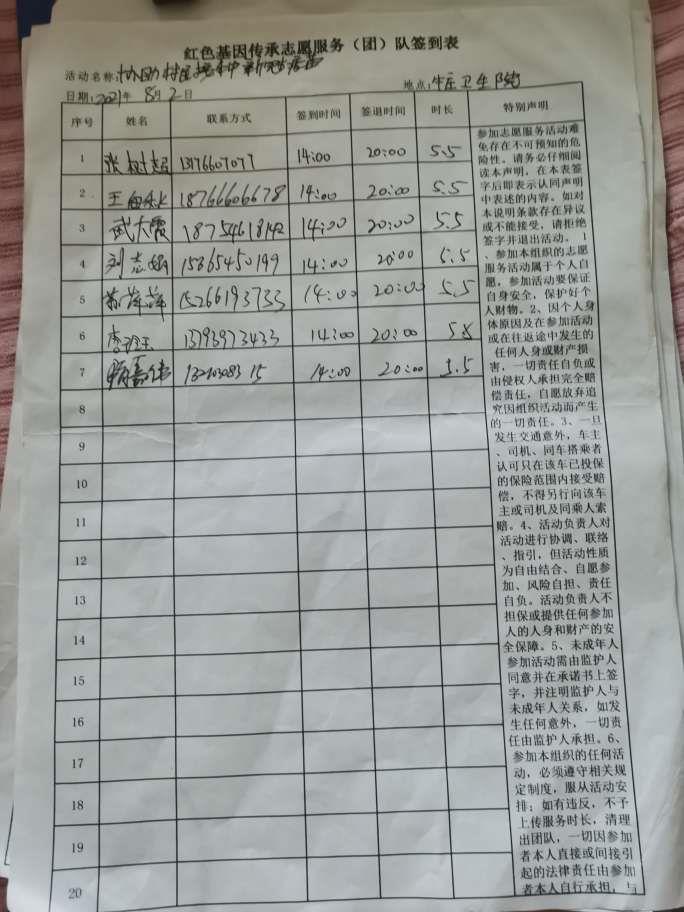 红色基因传承志愿服务（团）队签到表
活动名称：协助村民接种新冠疫苗
日期：2021年8月2日 地点：卫生院
序号 姓名 联系方式 签到时间 签退时间 时长 特别声明
1 张树超 13176607077 14:00 20:00 5.5
2 王 18766606678 14:00 20:00 5.5
3 武大震 18754618142 14:00 20:00 5.5
4 刘志娟 15865450199 14:00 20:00 5.5
5 萍萍 15266193733 14:00 20:00 5.5
6 李 13793973433 14:00 20:00 5.5
7 14:00 20:00 5.5
8
9
10
11
12
13
14
15
16
17
18
19
20
参加志愿服务活动难
免存在不可预知的危
险性，请务必仔细阅
读本声明，在本表签
字后即表示认同声明
中表述的内容。如对
本说明条款存在异议
或不能接受，请拒绝
签字并退出活动。 1
、参加本组织的志愿
服务活动属于个人自
愿，参加活动要保证
自身安全，保护好个
人财物。2、因个人身
体原因及在参加活动
或在往返途中发生的
任何人身或财产损
害，一切责任自负或
由侵权人承担完全赔
偿责任，自愿放弃追
究因组织活动而产生
的一切责任。3、一旦
发生交通意外，车主
、司机、同车搭乘者
认可只在该车已投保
的保险范围内接受赔
偿，不得另行向该车
主或司机及同乘人索
赔。4、活动负责人对
活动进行协调、联络
、指引，但活动性质
为自由结合、自愿参
加、风险自担、责任
自负。活动负责人不
担保或提供任何参加
人的人身和财产的安
全保障。5、未成年人
参加活动需由监护人
同意并在承诺书上签
字，并注明监护人与
未成年人关系，如发
生任何意外，一切责
任由监护人承担。6、
参加本组织的任何活
动，必须遵守相关规
定制度，服从活动安
排；如有违反，不予
上传服务时长，清理
出团队，一切因参加
者本人直接或间接引
起的法律责任由参加
者本人自行承担，与